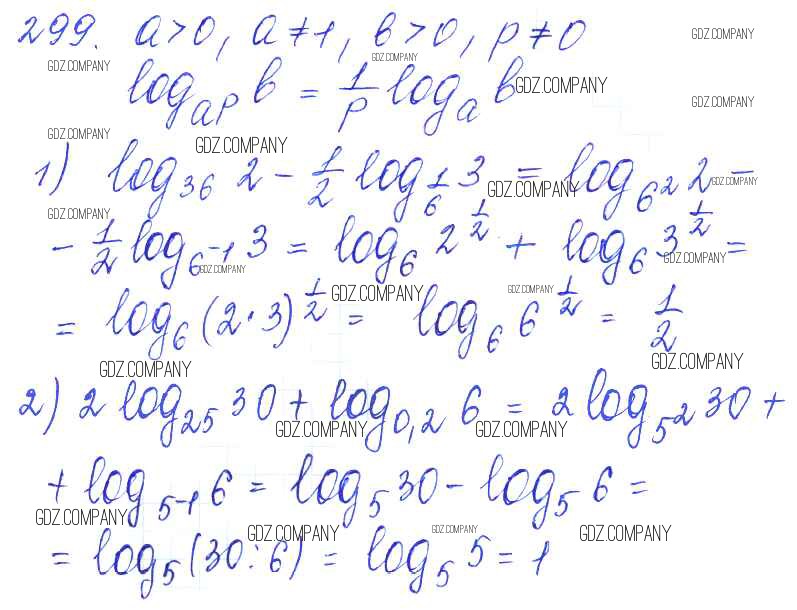 299. a>0, a≠1, b>0, p≠0 GDZ.COMPANY
GDZ.COMPANY GDZ.COMPANY
log_{a^p} b = 1/p log_a b GDZ.COMPANY
GDZ.COMPANY
GDZ.COMPANY GDZ.COMPANY
1) log_{36} 2 - 1/2 log_{1/6} 3 = log_{6^2} 2 -
GDZ.COMPANY GDZ.COMPANY
GDZ.COMPANY
- 1/2 log_{6^{-1}} 3 = log_6 2^{1/2} + log_6 3^{1/2} =
GDZ.COMPANY GDZ.COMPANY
= log_6 (2·3)^{1/2} = log_6 6^{1/2} = 1/2
GDZ.COMPANY GDZ.COMPANY
GDZ.COMPANY GDZ.COMPANY
2) 2 log_{25} 30 + log_{0,2} 6 = 2 log_{5^2} 30 +
GDZ.COMPANY GDZ.COMPANY
+ log_{5^{-1}} 6 = log_5 30 - log_5 6 =
GDZ.COMPANY
GDZ.COMPANY GDZ.COMPANY GDZ.COMPANY
= log_5 (30:6) = log_5 5 = 1